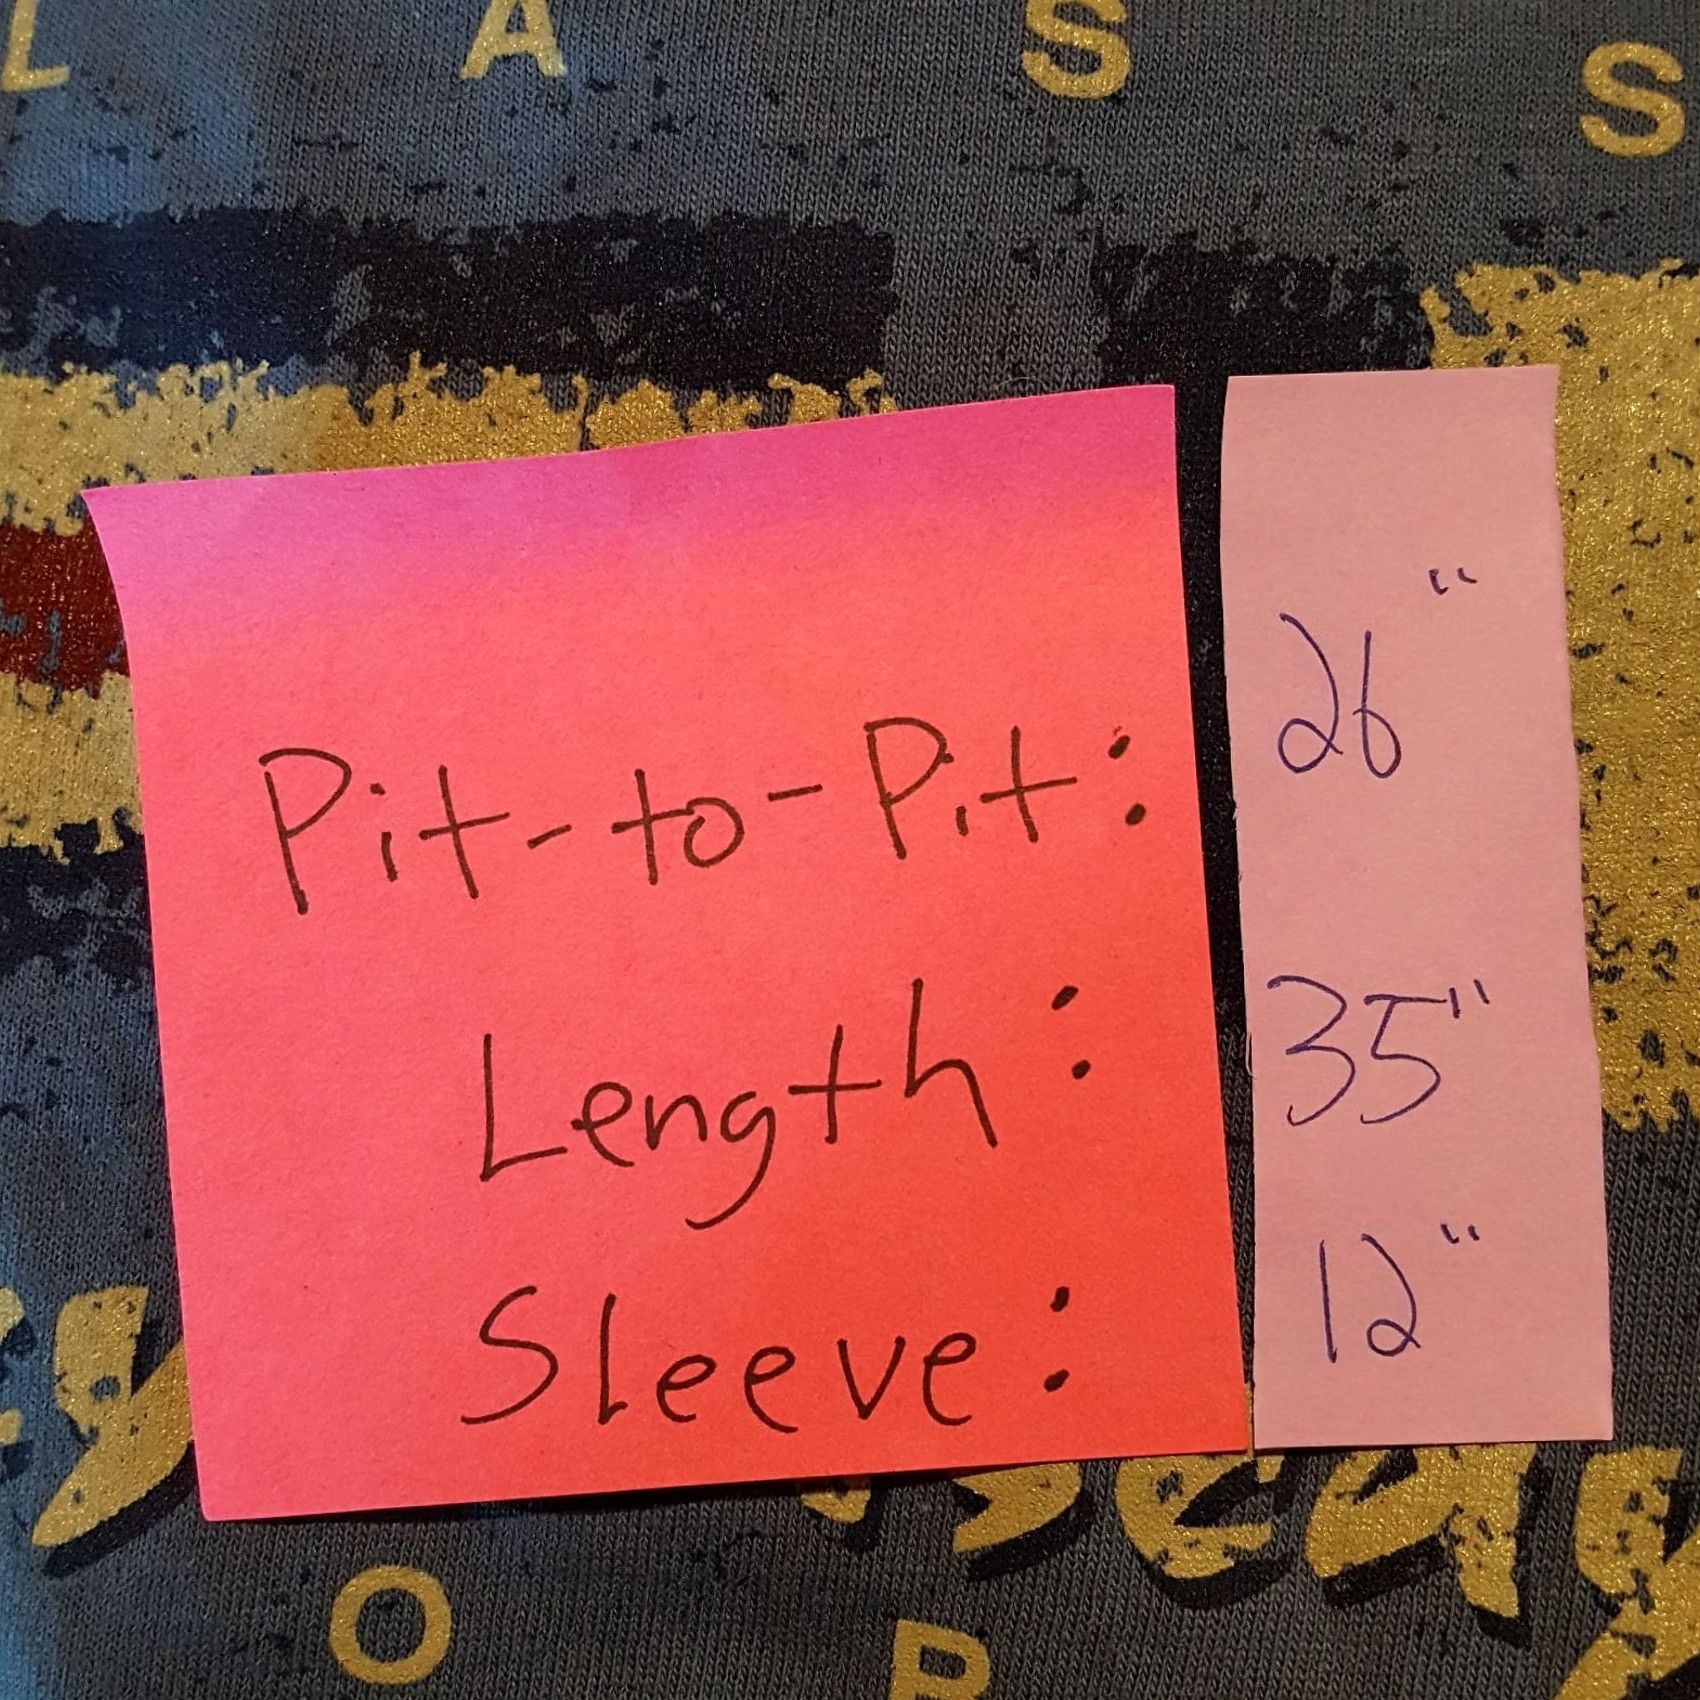 L A S S
Pit-to-Pit: 26"
Length: 35"
Sleeve: 12"
O P